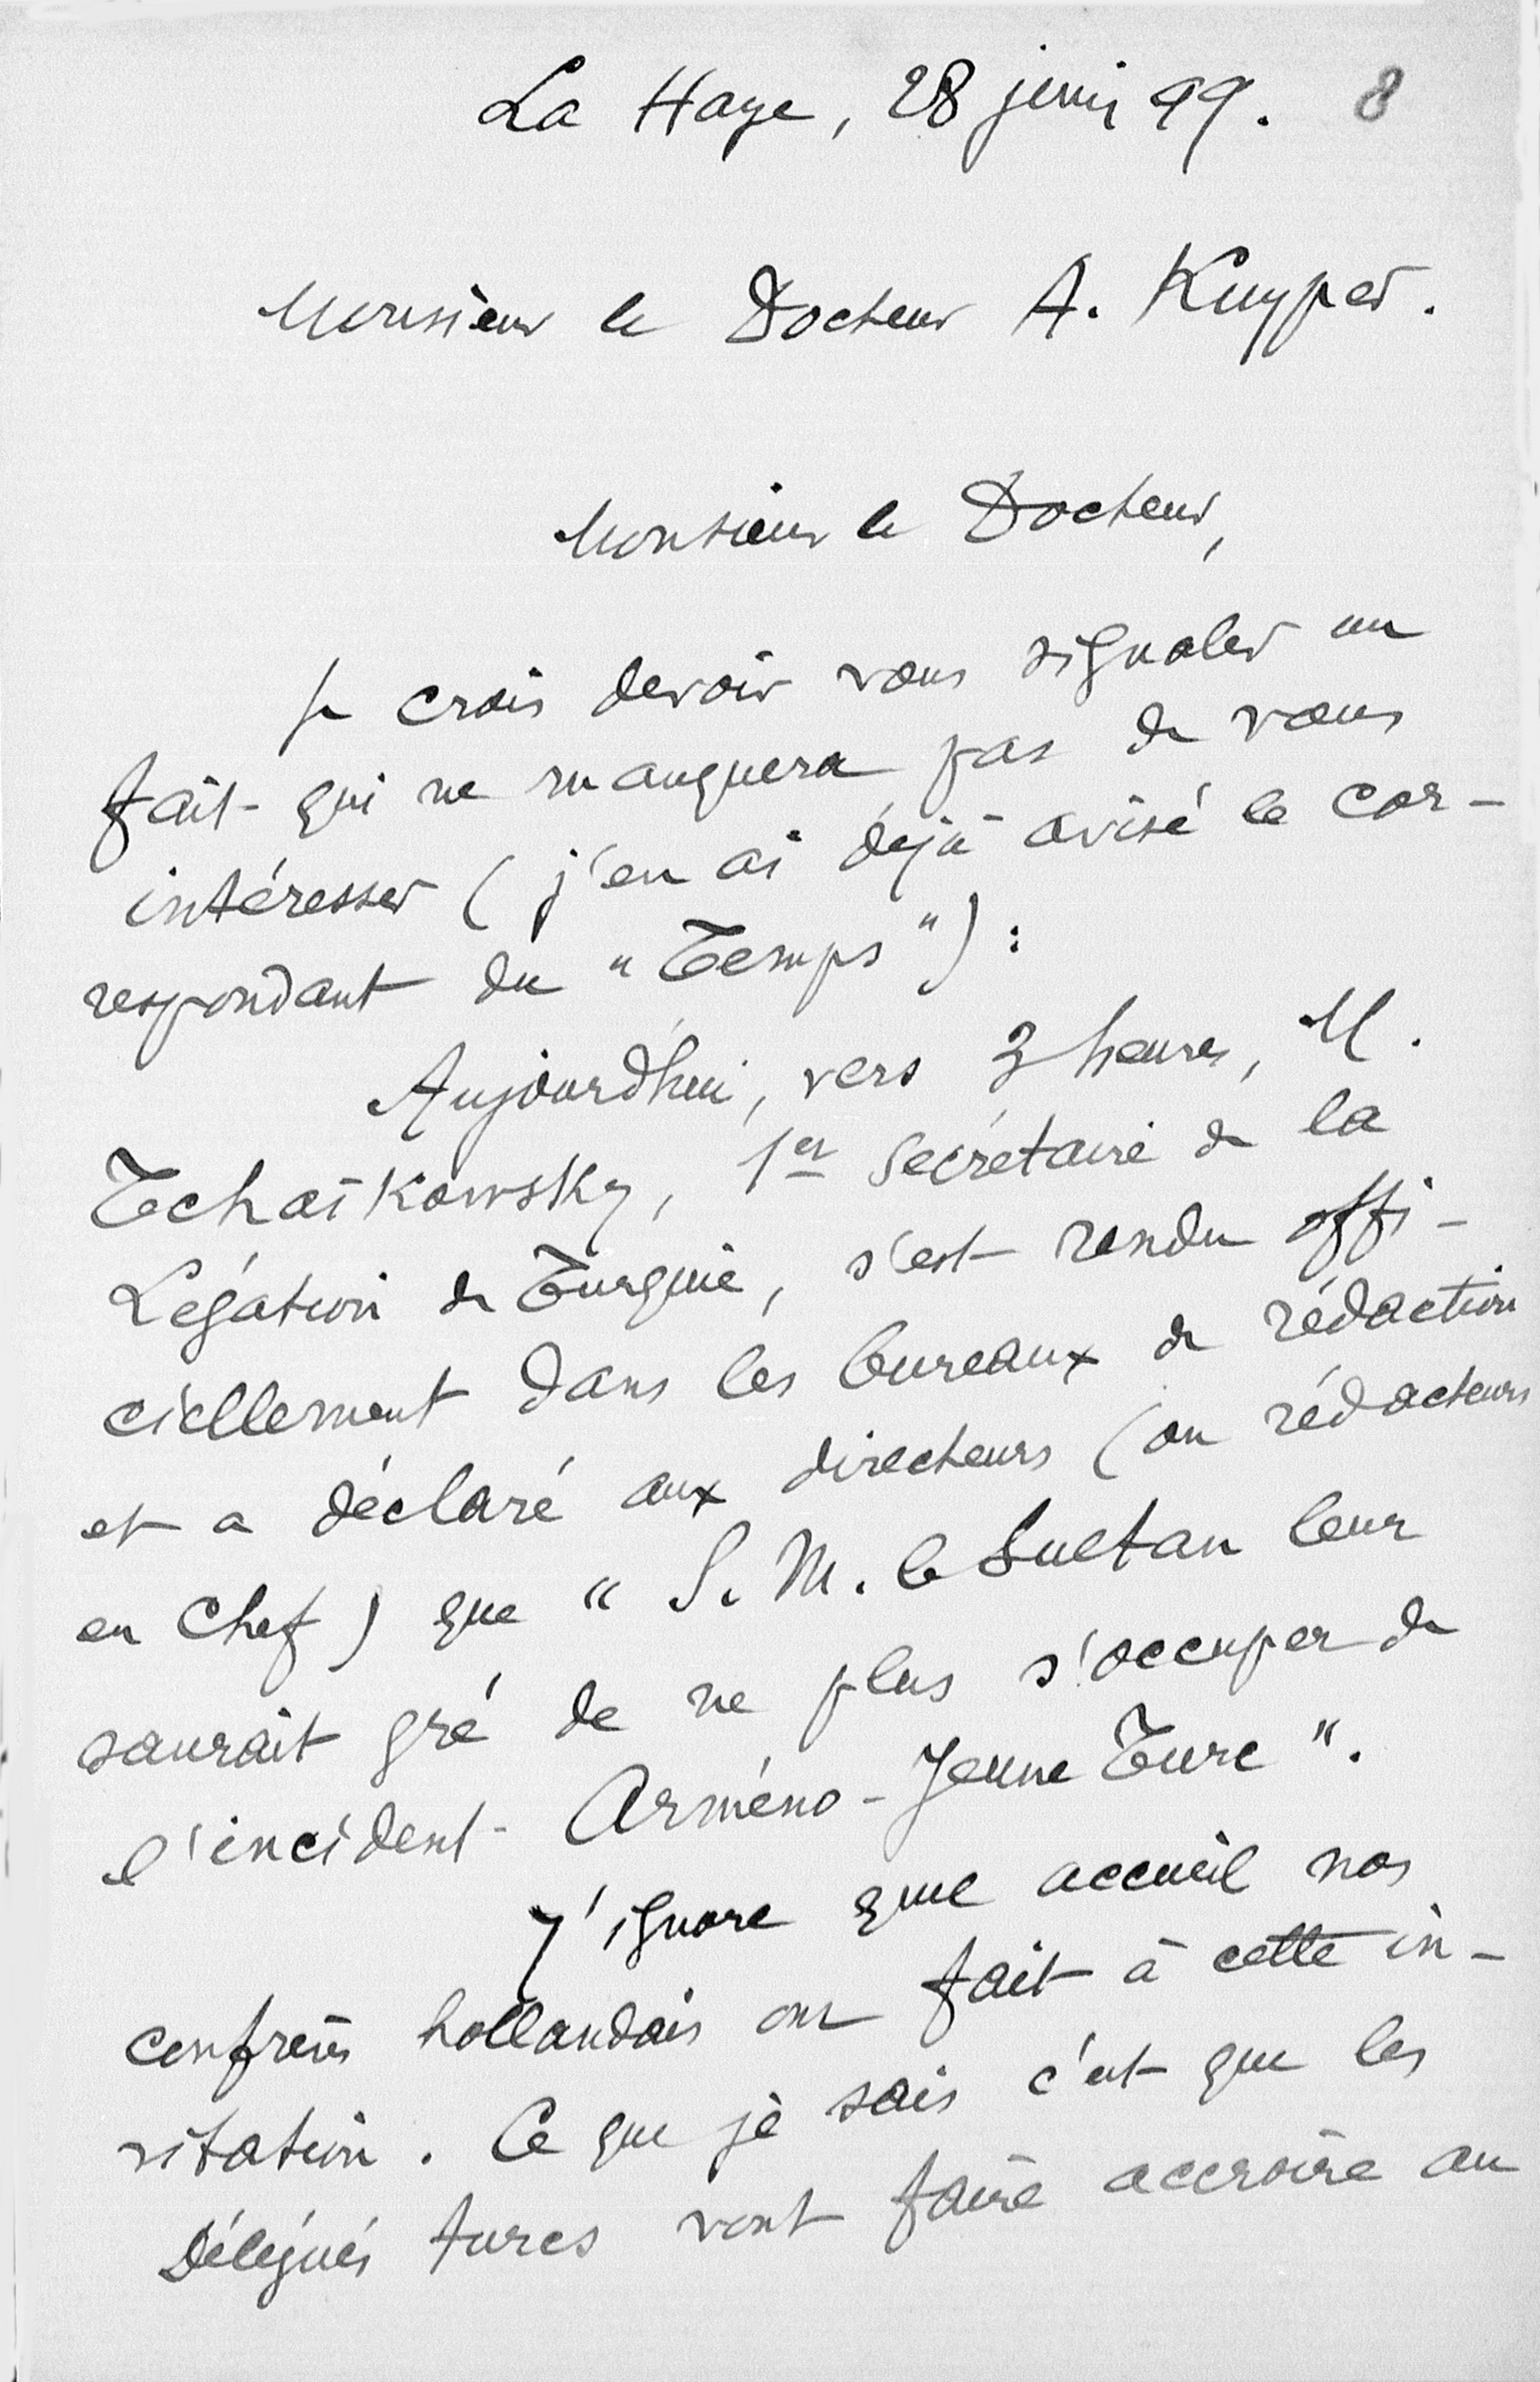 La Haye, 28 juin 99. 8
Monsieur le Docteur A. Kuyper.
Monsieur le Docteur,
Je crois devoir vous signaler un
fait qui ne manquera pas de vous
intéresser (j'en ai déjà avisé le cor-
respondant du "Temps"):
Aujourd'hui, vers 3 heures, M.
Tchaïkowsky, 1er Secrétaire de la
Légation de Turquie, s'est rendu offi-
ciellement dans les bureaux de rédaction
et a déclaré aux directeurs (ou rédacteurs
en chef) que "S. M. le Sultan leur
saurait gré de ne plus s'occuper de
l'incident Arméno-Jeune Turc".
J'ignore quel accueil nos
confrères hollandais ont fait à cette in-
vitation. Ce que je sais c'est que les
Délégués turcs vont faire accroire au